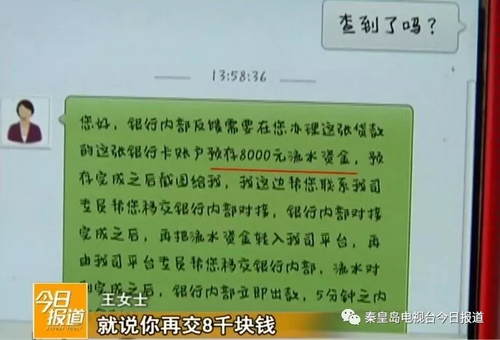 查到了吗?
13:58:36
您好,银行内部反馈需要在您办理这张贷款
的这张银行卡账户预存8000元流水资金,预
存完成之后截图给我,我这边帮您联系我司
委员帮您移交银行内部对接,银行内部对接
完成之后,再把流水资金转入我司平台,再
由我司平台委员帮您移交银行内部,流水对
完成之后,银行内部立即出款,5分钟之内
今日
报道
王女士
就说你再交8千块钱
秦皇岛电视台今日报道